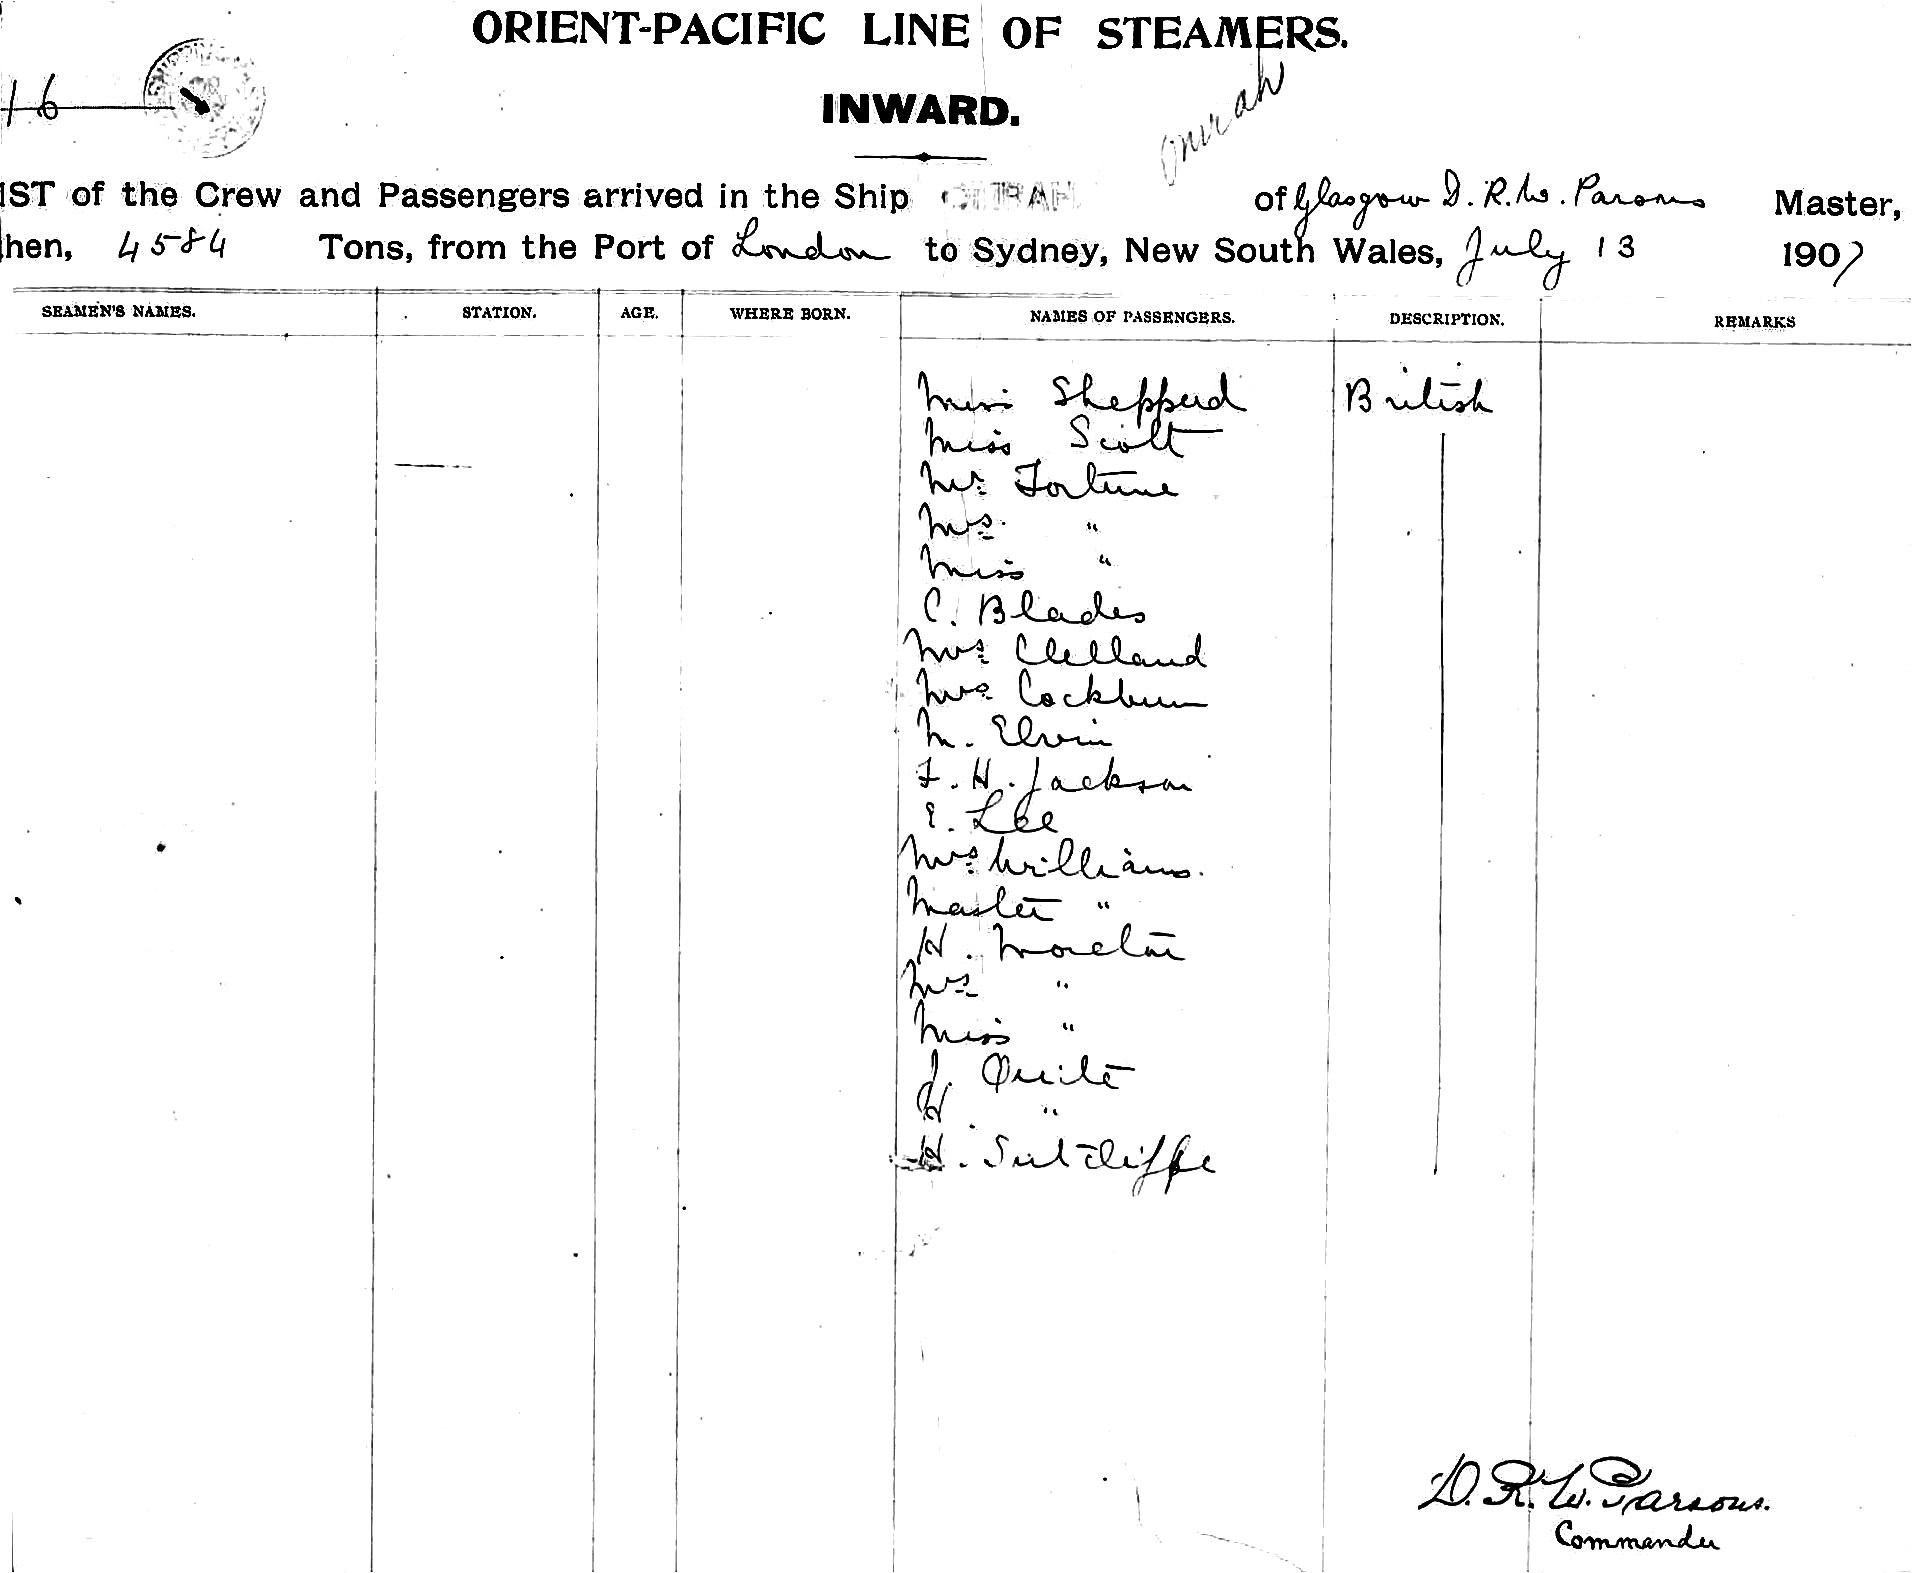 ORIENT-PACIFIC LINE OF STEAMERS.
16
INWARD.
Omrah
IST of the Crew and Passengers arrived in the Ship OMRAH of Glasgow D. R. W. Parsons Master,
hen, 4584 Tons, from the Port of London to Sydney, New South Wales, July 13 1907
SEAMEN'S NAMES. STATION. AGE. WHERE BORN. NAMES OF PASSENGERS. DESCRIPTION. REMARKS
Miss Shepperd British
Miss Scott
Mr Fortune
Mrs "
Miss "
C. Blades
Mrs Clelland
Mrs Cockburn
M. Elvin
F. H. Jackson
E. Lee
Mrs Williams.
Master "
H. Moreton
Mrs "
Miss "
J. Quilt
H. "
H. Sutcliffe
D. R. W. Parsons.
Commander